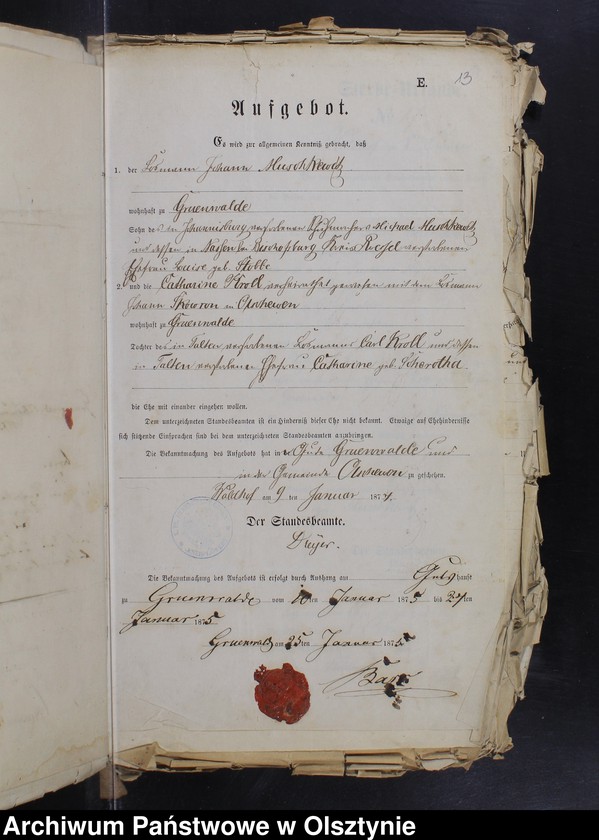 E.
13
Aufgebot.
Es wird zur allgemeinen Kenntniß gebracht, daß
1. der Losmann Johann Muschkewitz
wohnhaft zu Gruenwalde
Sohn des in Johannisburg verstorbenen Schuhmachers Michael Muschkewitz
und dessen in Bischofsburg Kreis Roessel verstorbenen
Ehefrau Louise geb. Stobbe
2. und die Catharine Kroll verheirathet gewesen mit dem Losmann
Johann Skowron in
wohnhaft zu Gruenwalde
Tochter des in Talten verstorbenen Losmanns Carl Kroll und dessen
in Talten verstorbenen Ehefrau Catharine geb.
die Ehe mit einander eingehen wollen.
Dem unterzeichneten Standesbeamten ist ein Hinderniß dieser Ehe nicht bekannt. Etwaige auf Ehehindernisse
sich stützende Einsprachen sind bei dem unterzeichneten Standesbeamten anzubringen.
Die Bekanntmachung des Aufgebots hat in Gruenwalde und
in der Gemeinde zu geschehen.
am 9 ten Januar 187
Der Standesbeamte.
Die Bekanntmachung des Aufgebots ist erfolgt durch Aushang am Guts hause
zu Gruenwalde vom 10 ten Januar 1875 bis 24 ten
Januar 1875
Gruenwalde am 25 ten Januar 1875
Archiwum Państwowe w Olsztynie